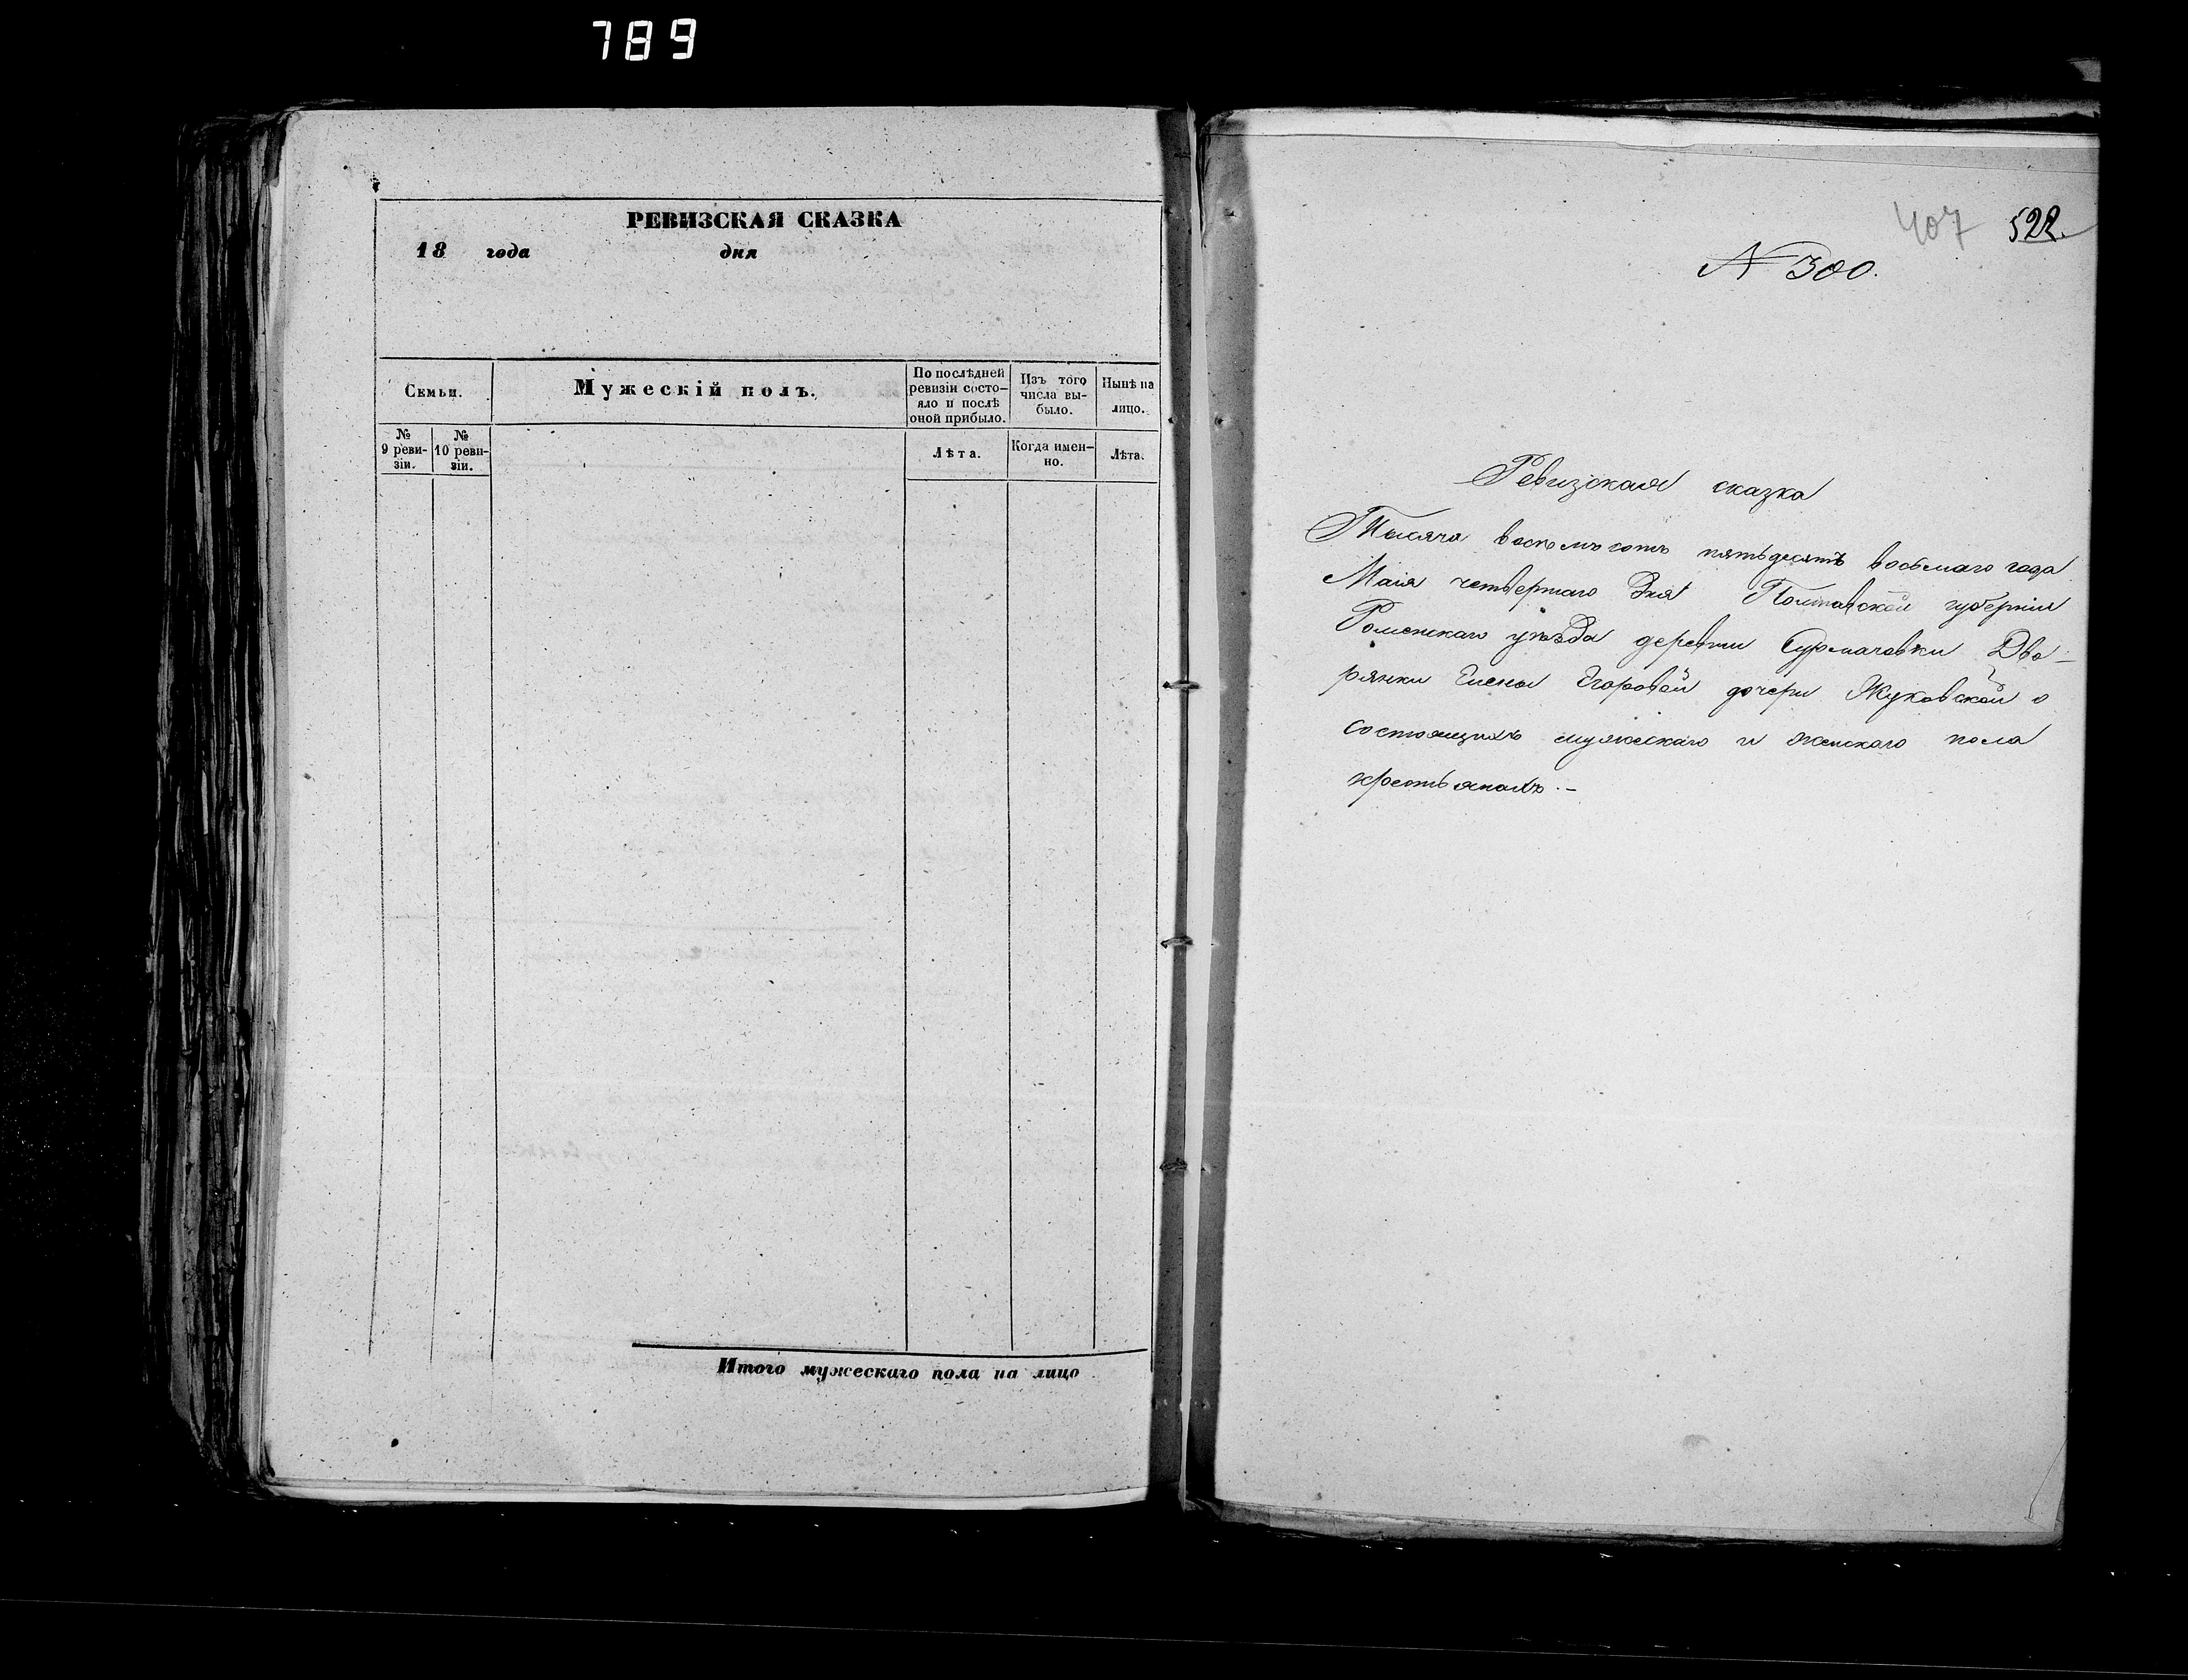 789
РЕВИЗСКАЯ СКАЗКА
18 года дня
Семьи.
Мужескій полъ.
По послѣдней
ревизіи состо-
яло и послѣ
оной прибыло.
Изъ того
числа вы-
было.
Нынѣ на
лицо.
№
9 реви-
зіи.
№
10 реви-
зіи.
Лѣта.
Когда имен-
но.
Лѣта.
Итого мужескаго пола на лицо
407 522.
№ 300.
Ревизская сказка
Тысяча восемьсотъ пятьдесятъ восьмаго года
Маія четвертаго Дня Полтавской губерніи
Роменскаго уѣзда деревни Сурмачовки Дво-
рянки Елены Егоровой дочери Жуковской о
состоящихъ мужескаго и женскаго пола
крестьянахъ.-